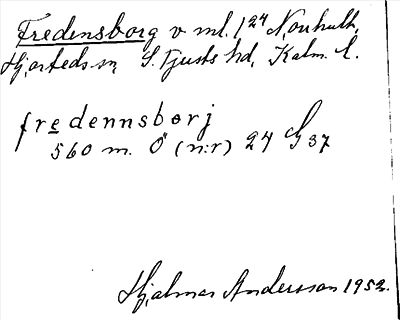 Fredensborg v ml. 1²⁴ Norrhult,
Hjorteds sn S. Tjusts hd, Kalm. l.
fredennsborj
560 m. Ö (n:r) 24 G 37
Hjalmar Andersson 1952.